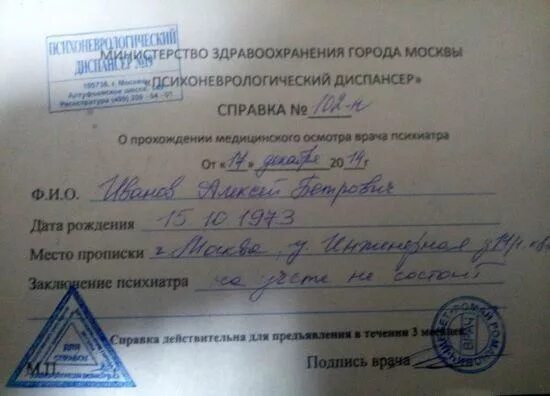 ПСИХОНЕВРОЛОГИЧЕСКИЙ
ДИСПАНСЕР
г. Москва
Алтуфьевское шоссе
Регистратура (495)
МИНИСТЕРСТВО ЗДРАВООХРАНЕНИЯ ГОРОДА МОСКВЫ
«ПСИХОНЕВРОЛОГИЧЕСКИЙ ДИСПАНСЕР»
СПРАВКА № 102-н
О прохождении медицинского осмотра врача психиатра
От «17» декабря 2014г
Ф.И.О. Иванов Алексей Петрович
Дата рождения 15.10.1973
Место прописки г. Москва, у. Инженерная
Заключение психиатра на учете не состоит
Справка действительна для предъявления в течении 3 месяцев
М.П. Подпись врача
ДЛЯ
СПРАВОК
ВРАЧ